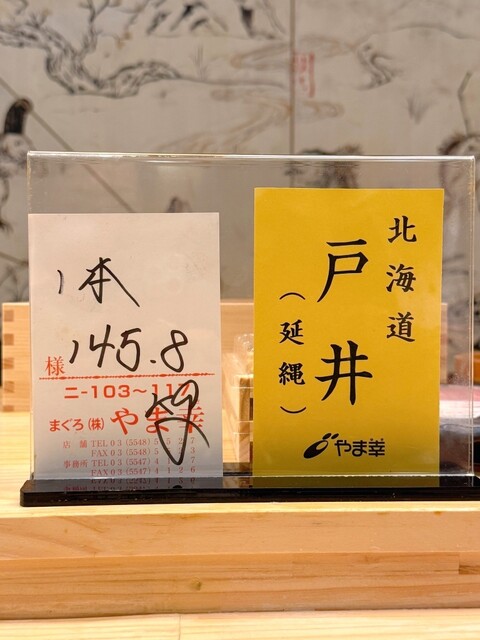 1本
様 145.8
二-103～11
まぐろ(株) やま幸
店舗 TEL 03(5548)
FAX 03(5548)
事務所 TEL 03(5547)
FAX 03(5547)
北海道
戸井
(延縄)
やま幸